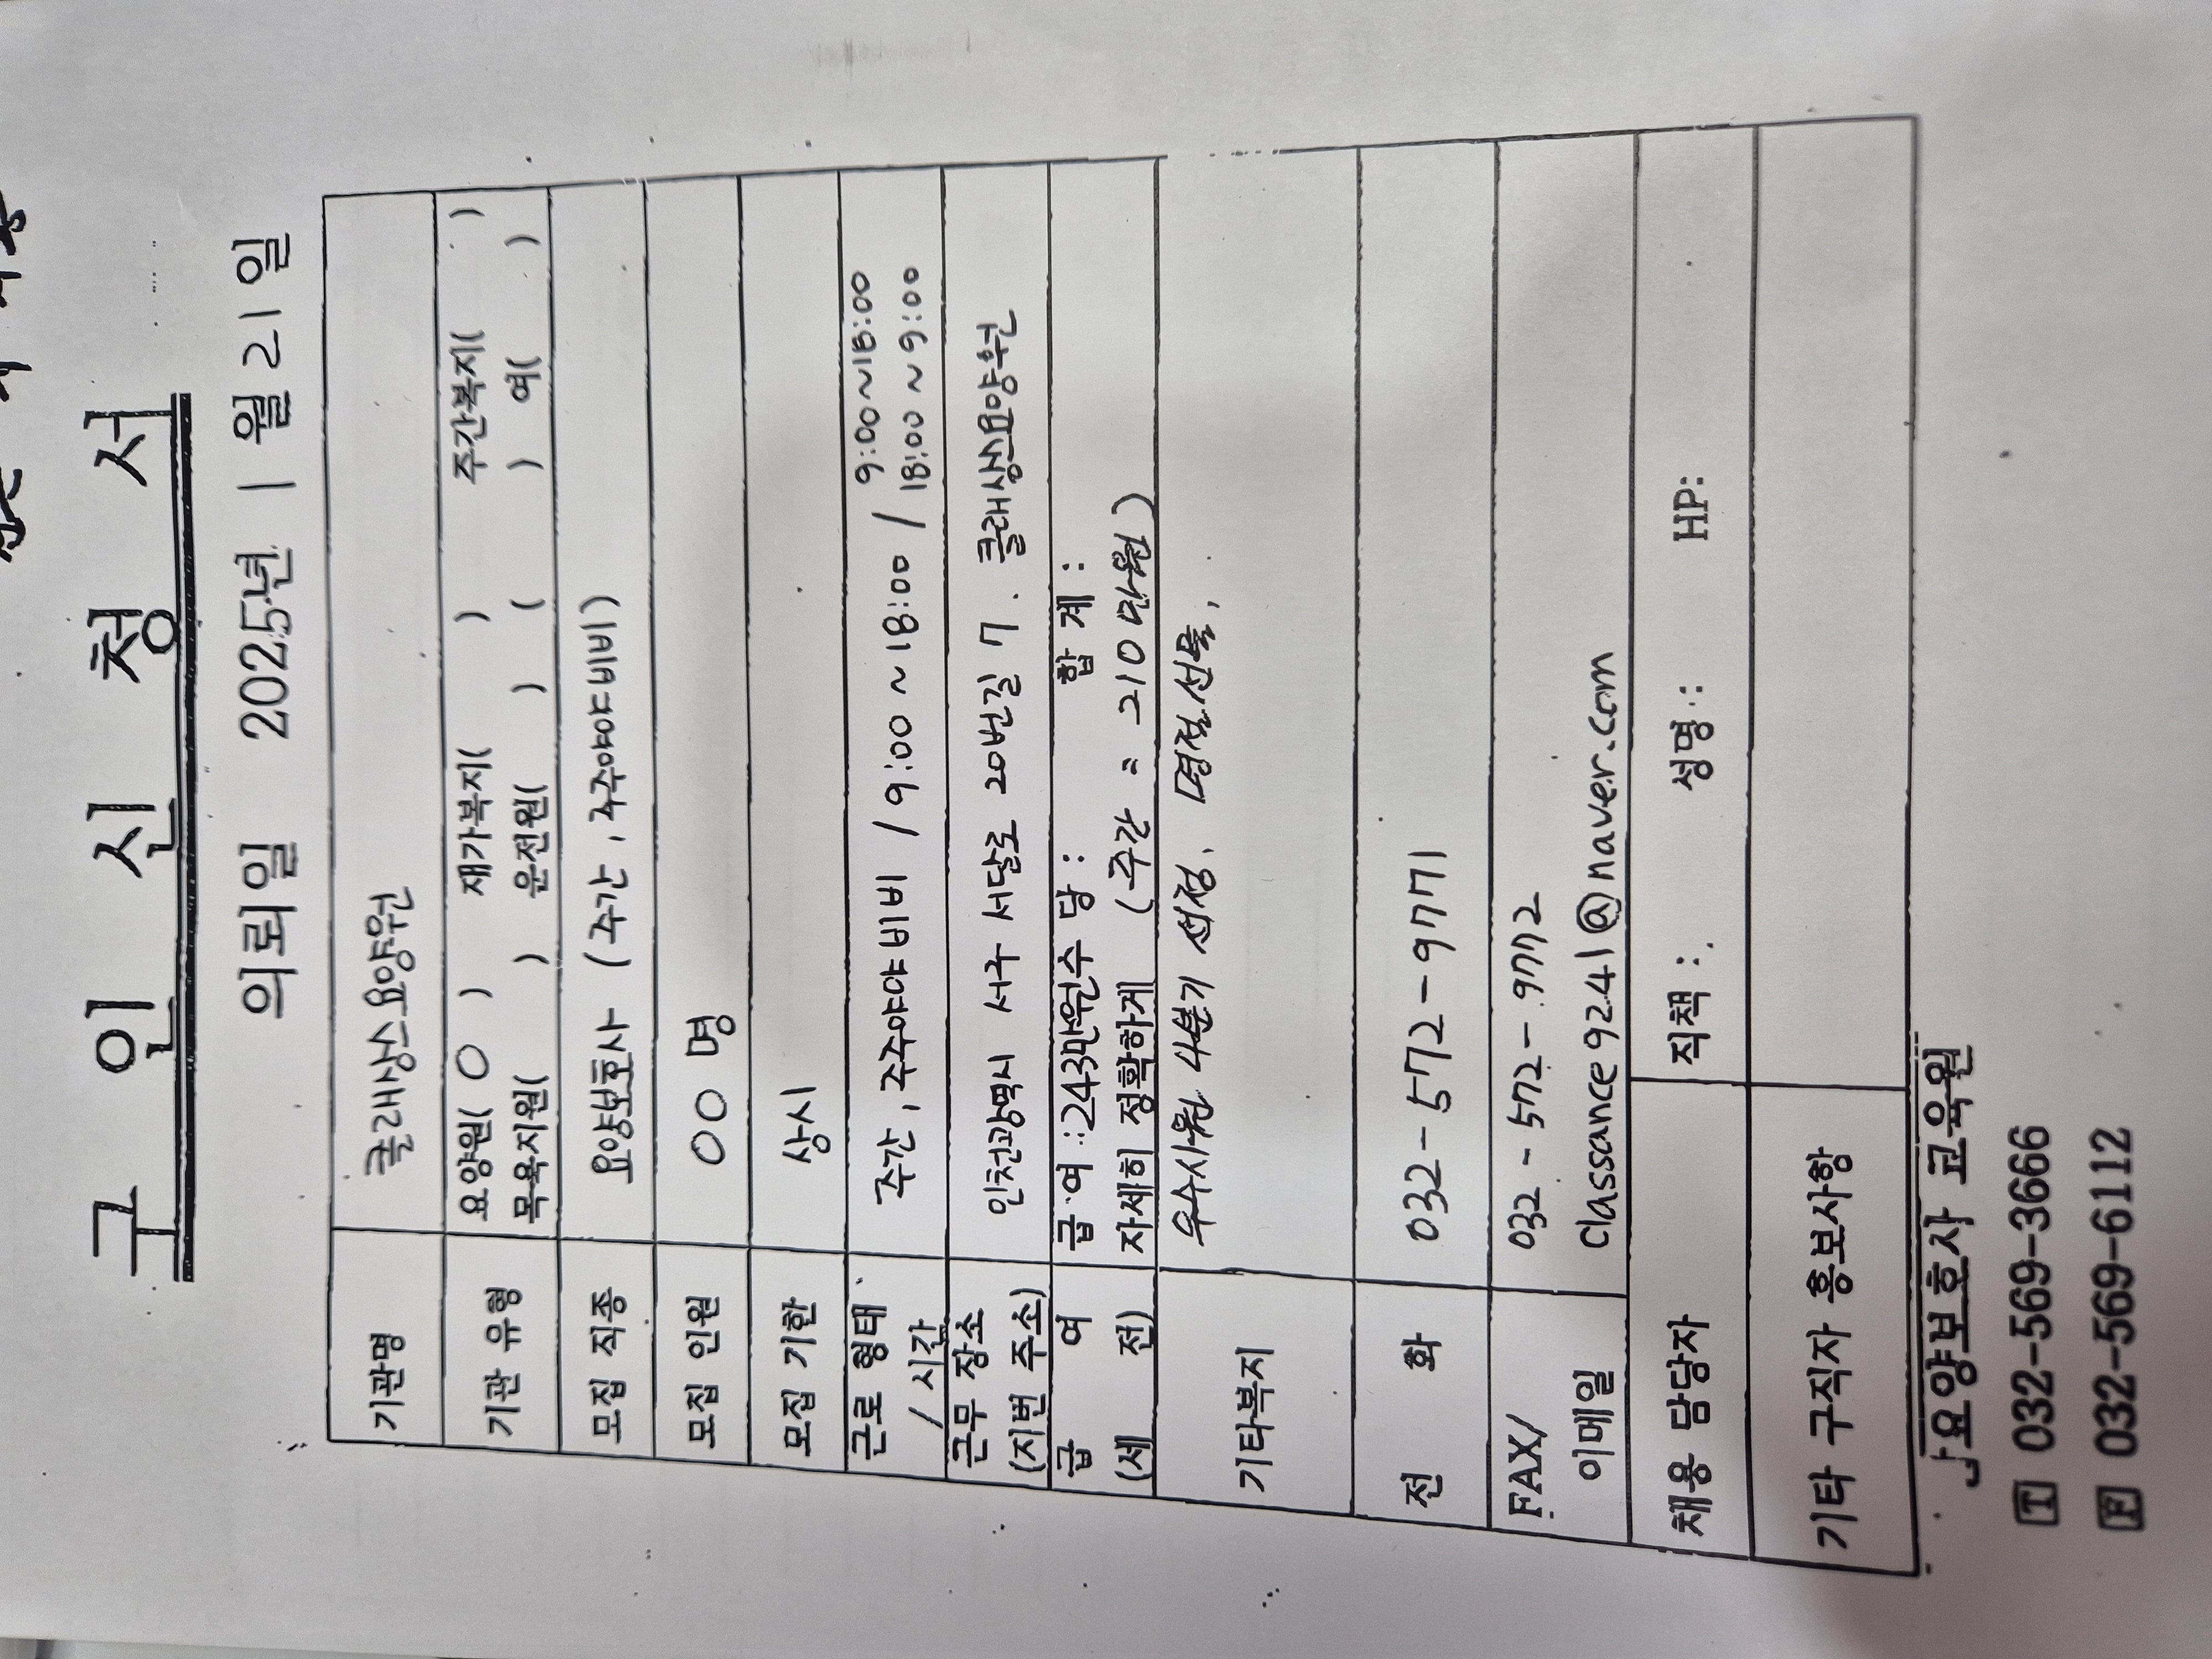 구 인 신 청 서
의뢰일 2025년 1월 21일
기관명 클래상스요양원
기관 유형 요양원( O ) 재가복지( ) 주간복지( )
목욕지원( ) 운전원( ) ( ) 여( )
모집 직종 요양보호사 (주간, 주주야야비비)
모집 인원 00명
모집 기한 상시
근로 형태 / 시간 주간, 주주야야비비 / 9:00 ~ 18:00 / 9:00 ~ 18:00
18:00 ~ 9:00
근무 장소 (지번 주소) 인천광역시 서구 서달로 20번길 7. 클래상스요양원
급 여 급 여 : 243만원 수 당 : 합 계 :
(세 전) 자세히 정확하게 (주간 = 210만원)
기타복지 우수사원 4분기 선정, 명절선물,
전 화 032-572-9771
FAX/ 032-572-9772
이메일 classance9241@naver.com
채용 담당자 직책 : 성명 : HP:
기타 구직자 홍보사항
요양보호사 교육원
T 032-569-3666
F 032-569-6112